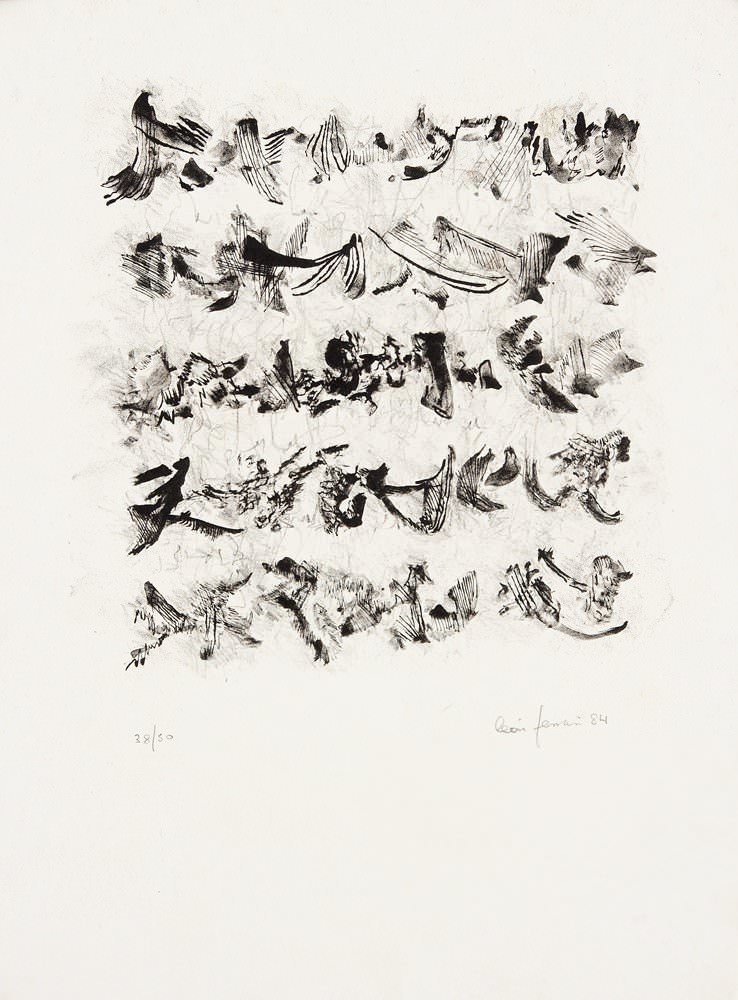 38/50
león ferrari 84